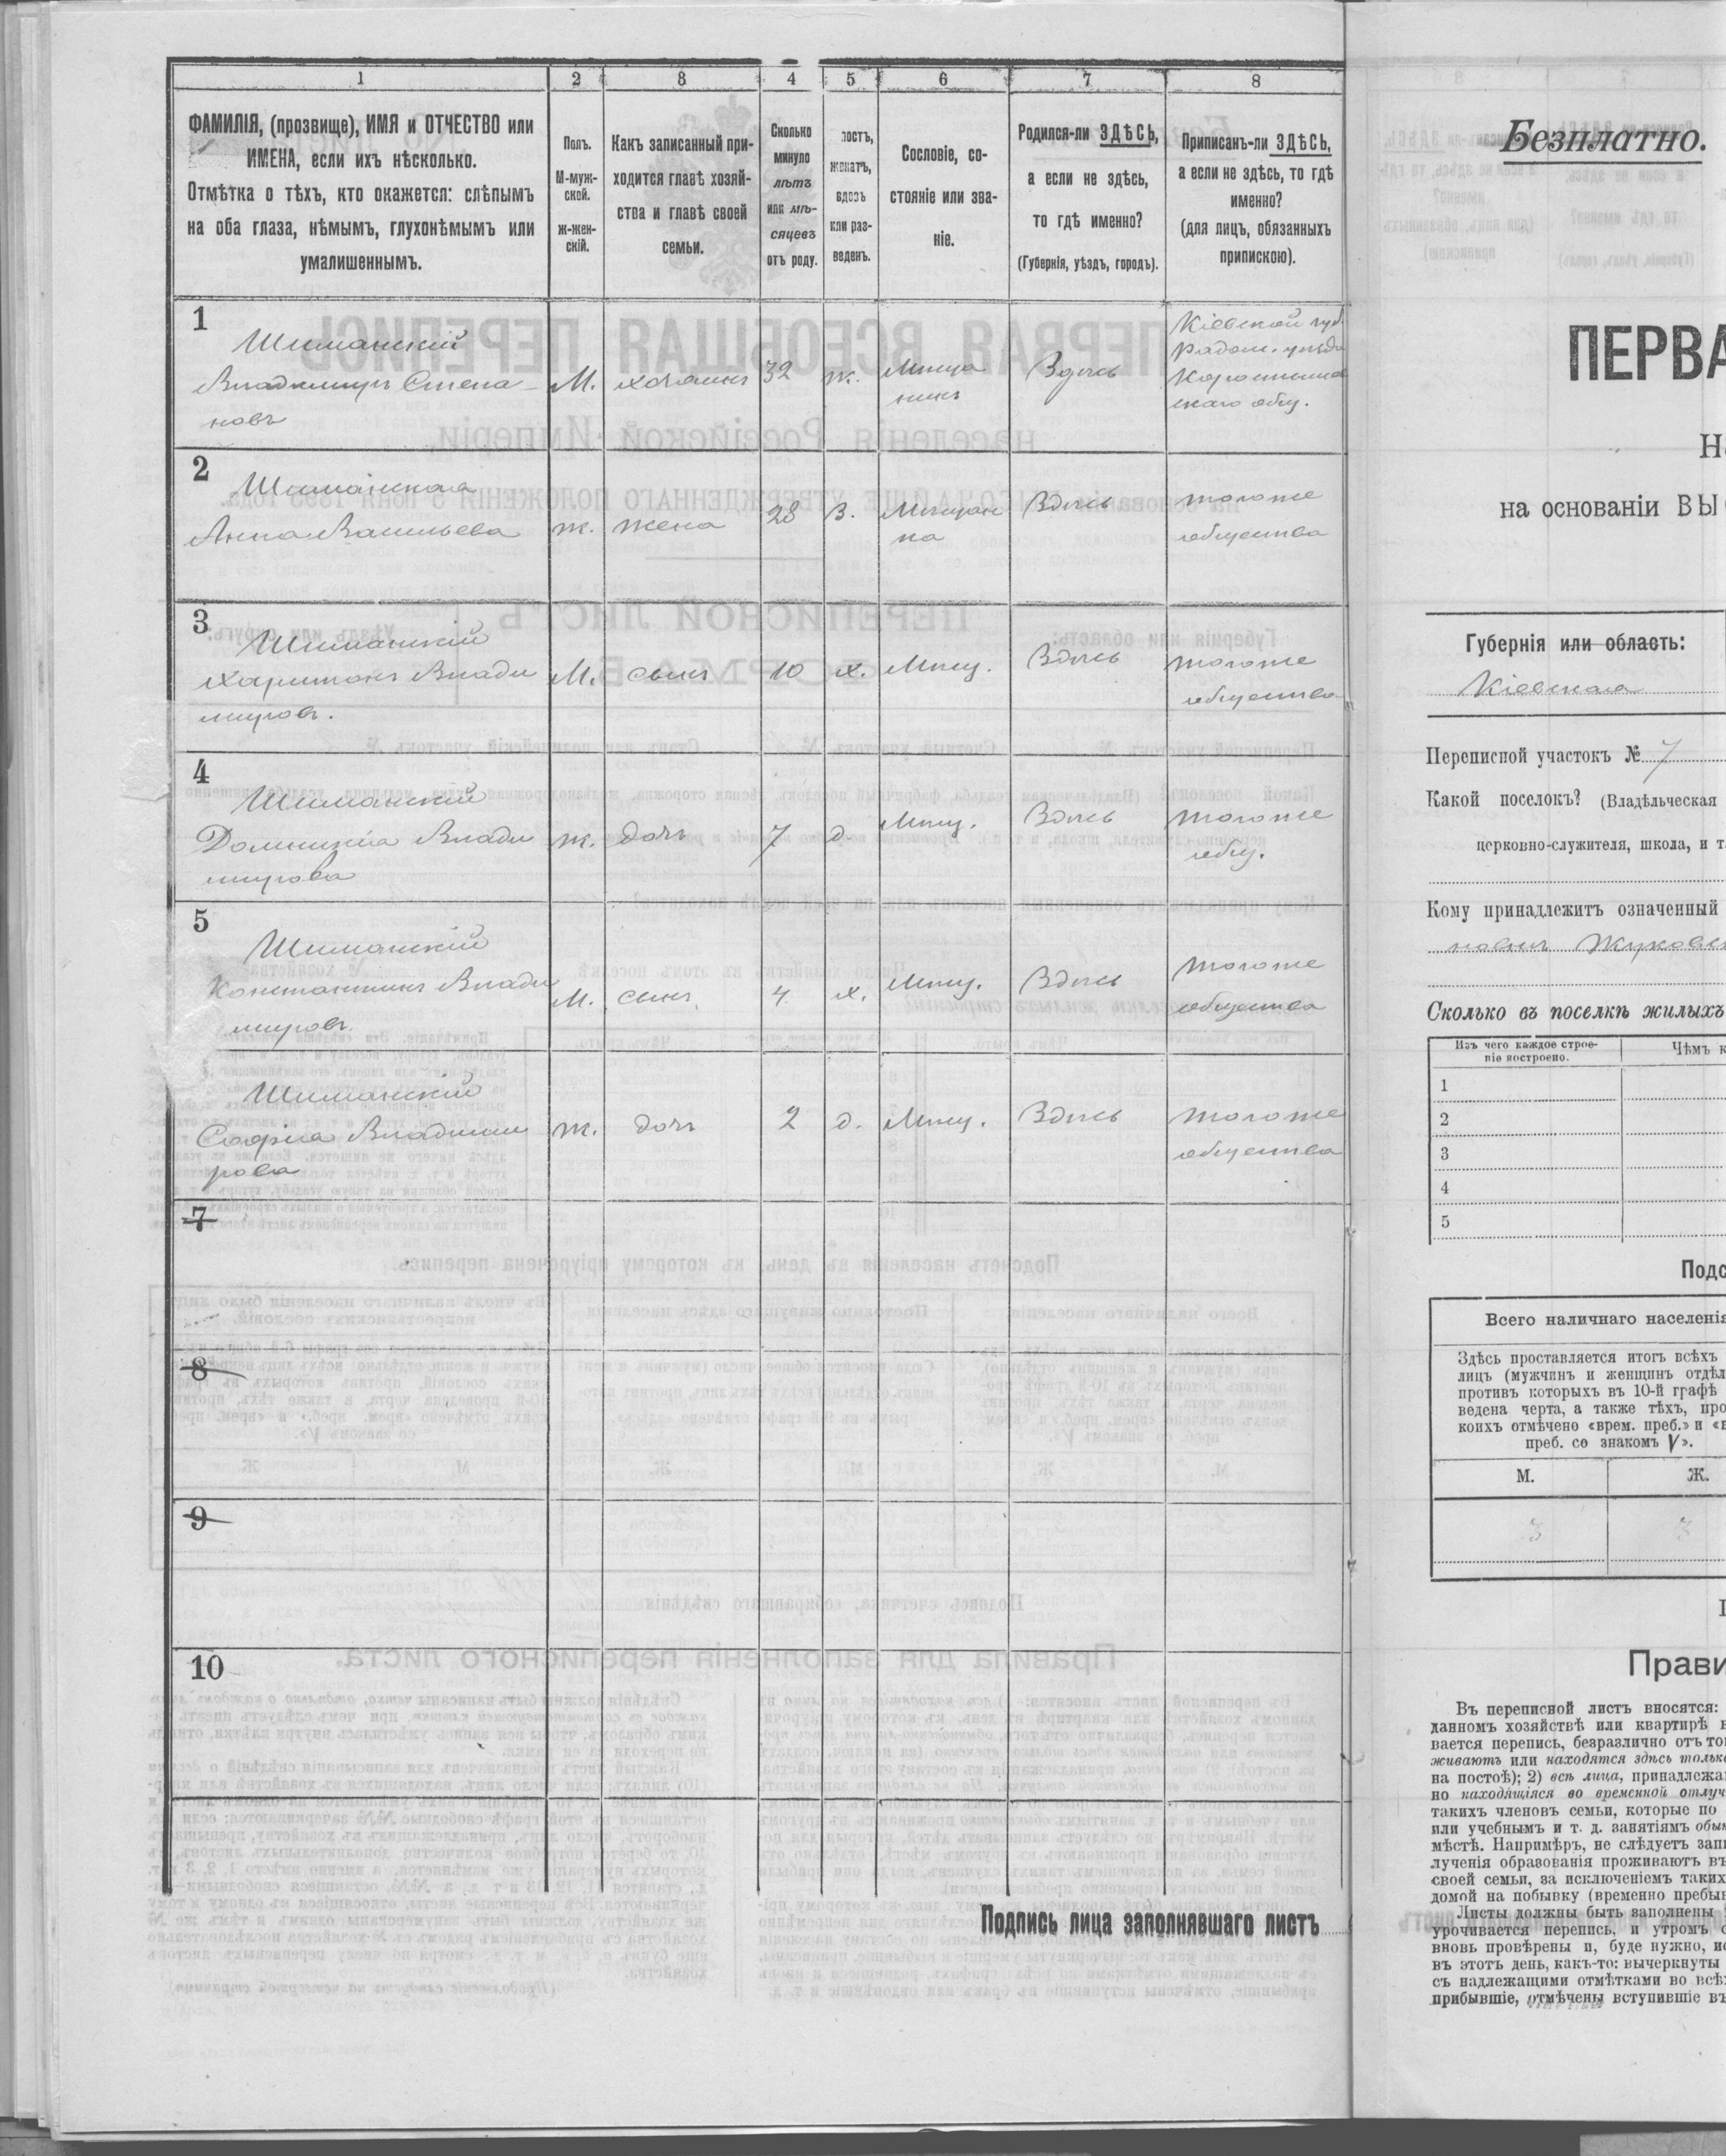 1 2 3 4 5 6 7 8
ФАМИЛІЯ, (прозвище), ИМЯ и ОТЧЕСТВО или
ИМЕНА, если ихъ нѣсколько.
Отмѣтка о тѣхъ, кто окажется: слѣпымъ
на оба глаза, нѣмымъ, глухонѣмымъ или
умалишеннымъ.
Полъ.
М-муж-
ской.
ж-жен-
скій.
Какъ записанный при-
ходится главѣ хозяй-
ства и главѣ своей
семьи.
Сколько
минуло
лѣтъ
или мѣ-
сяцевъ
отъ роду.
лостъ,
женатъ,
вдовъ
или раз-
веденъ.
Сословіе, со-
стояніе или зва-
ніе.
Родился-ли ЗДѢСЬ,
а если не здѣсь,
то гдѣ именно?
(Губернія, уѣздъ, городъ).
Приписанъ-ли ЗДѢСЬ,
а если не здѣсь, то гдѣ
именно?
(для лицъ, обязанныхъ
припискою).
1
Шиманскій
Владимиръ Степа-
новъ
М.
хозяинъ
32
ж.
Мѣща
нинъ
Здѣсь
Кіевской губ.
Радом. уѣзда
скаго общ.
2
Шиманская
Анна Васильева
ж.
жена
28
З.
Мѣщан
ка
Здѣсь
тогоже
общества
3
Шиманскій
Харитонъ Влади
миров.
М.
сынъ
10
х.
Мѣщ.
Здѣсь
тогоже
общества
4
Шиманскій
Доминикіа Влади
мирова
ж.
дочь
7
д.
Мѣщ.
Здѣсь
тогоже
общ.
5
Шиманскій
Константинъ Влади
міровъ
М.
сынъ
4
х.
Мѣщ.
Здѣсь
тогоже
общества
Шиманскій
Софіа Владими
рова
ж.
дочь
2
д.
Мѣщ.
Здѣсь
тогоже
общества
7
8
9
10
Подпись лица заполнявшаго листъ
Безплатно.
ПЕРВА
На
на основаніи ВЫС
Губернія или область:
Кіевская
Переписной участокъ № 7
Какой поселокъ? (Владѣльческая
церковно-служителя, школа, и т.
Кому принадлежитъ означенный
новнѣ Жуковс
Сколько въ поселкѣ жилыхъ
Изъ чего каждое строе-
ніе построено.
Чѣмъ к
1
2
3
4
5
Подс
Всего наличнаго населенія
Здѣсь проставляется итогъ всѣхъ
лицъ (мужчинъ и женщинъ отдѣл
противъ которыхъ въ 10-й графѣ
ведена черта, а также тѣхъ, про
коихъ отмѣчено «врем. преб.» и «в
преб. со знакомъ V».
М. Ж.
3 3
Прави
Въ переписной листъ вносятся:
данномъ хозяйствѣ или квартирѣ в
вается перепись, безразлично отъ тог
живаютъ или находятся здѣсь только
на постоѣ); 2) всѣ лица, принадлежа
но находящіяся во временной отлуч
такихъ членовъ семьи, которые по
или учебнымъ и т. д. занятіямъ обык
мѣстѣ. Напримѣръ, не слѣдуетъ запи
лученія образованія проживаютъ въ
своей семьи, за исключеніемъ таких
домой на побывку (временно пребыв
Листы должны быть заполнены
урочивается перепись, и утромъ с
вновь провѣрены и, буде нужно, ис
въ этотъ день, какъ-то: вычеркнуты
съ надлежащими отмѣтками во всѣх
прибывшіе, отмѣчены вступившіе въ